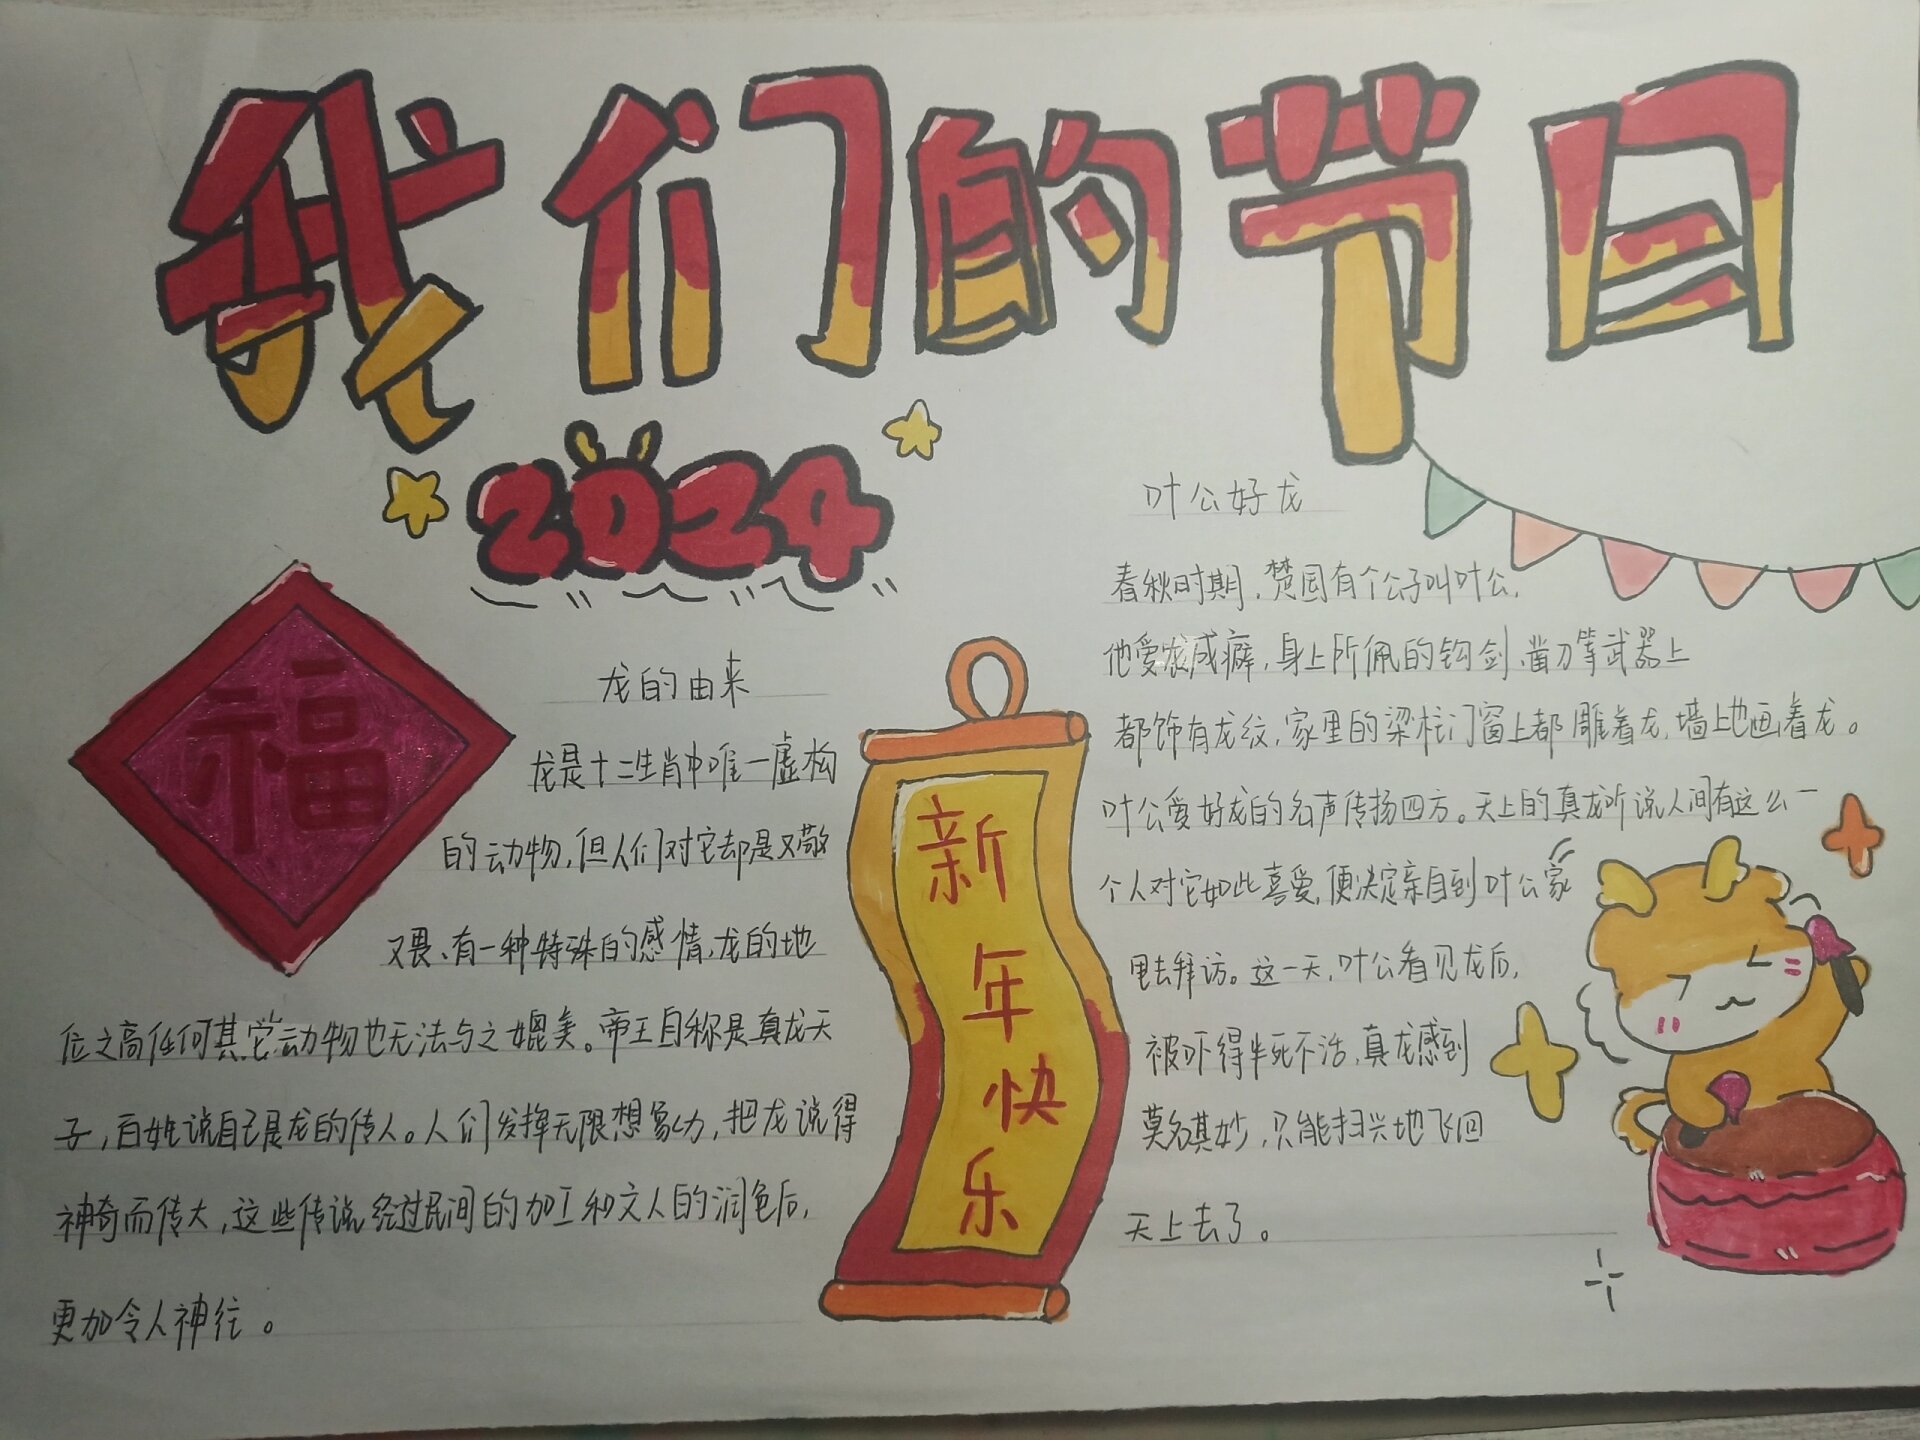 我们的节日
2024
福
龙的由来
龙是十二生肖中唯一虚构
的动物，但人们对它却是又敬
又畏、有一种特殊的感情，龙的地
位之高任何其它动物也无法与之媲美。帝王自称是真龙天
子，百姓说自己是龙的传人。人们发挥无限想象力，把龙说得
神奇而伟大，这些传说经过民间的加工和文人的润色后，
更加令人神往。
新年快乐
叶公好龙
春秋时期，楚国有个公子叫叶公，
他爱龙成癖，身上所佩的钩剑、凿刀等武器上
都饰有龙纹，家里的梁柱门窗上都雕着龙，墙上也画着龙。
叶公爱好龙的名声传扬四方。天上的真龙听说人间有这么一
个人对它如此喜爱，便决定亲自到叶公家
里去拜访。这一天，叶公看见龙后，
被吓得半死不活，真龙感到
莫名其妙，只能扫兴地飞回
天上去了。